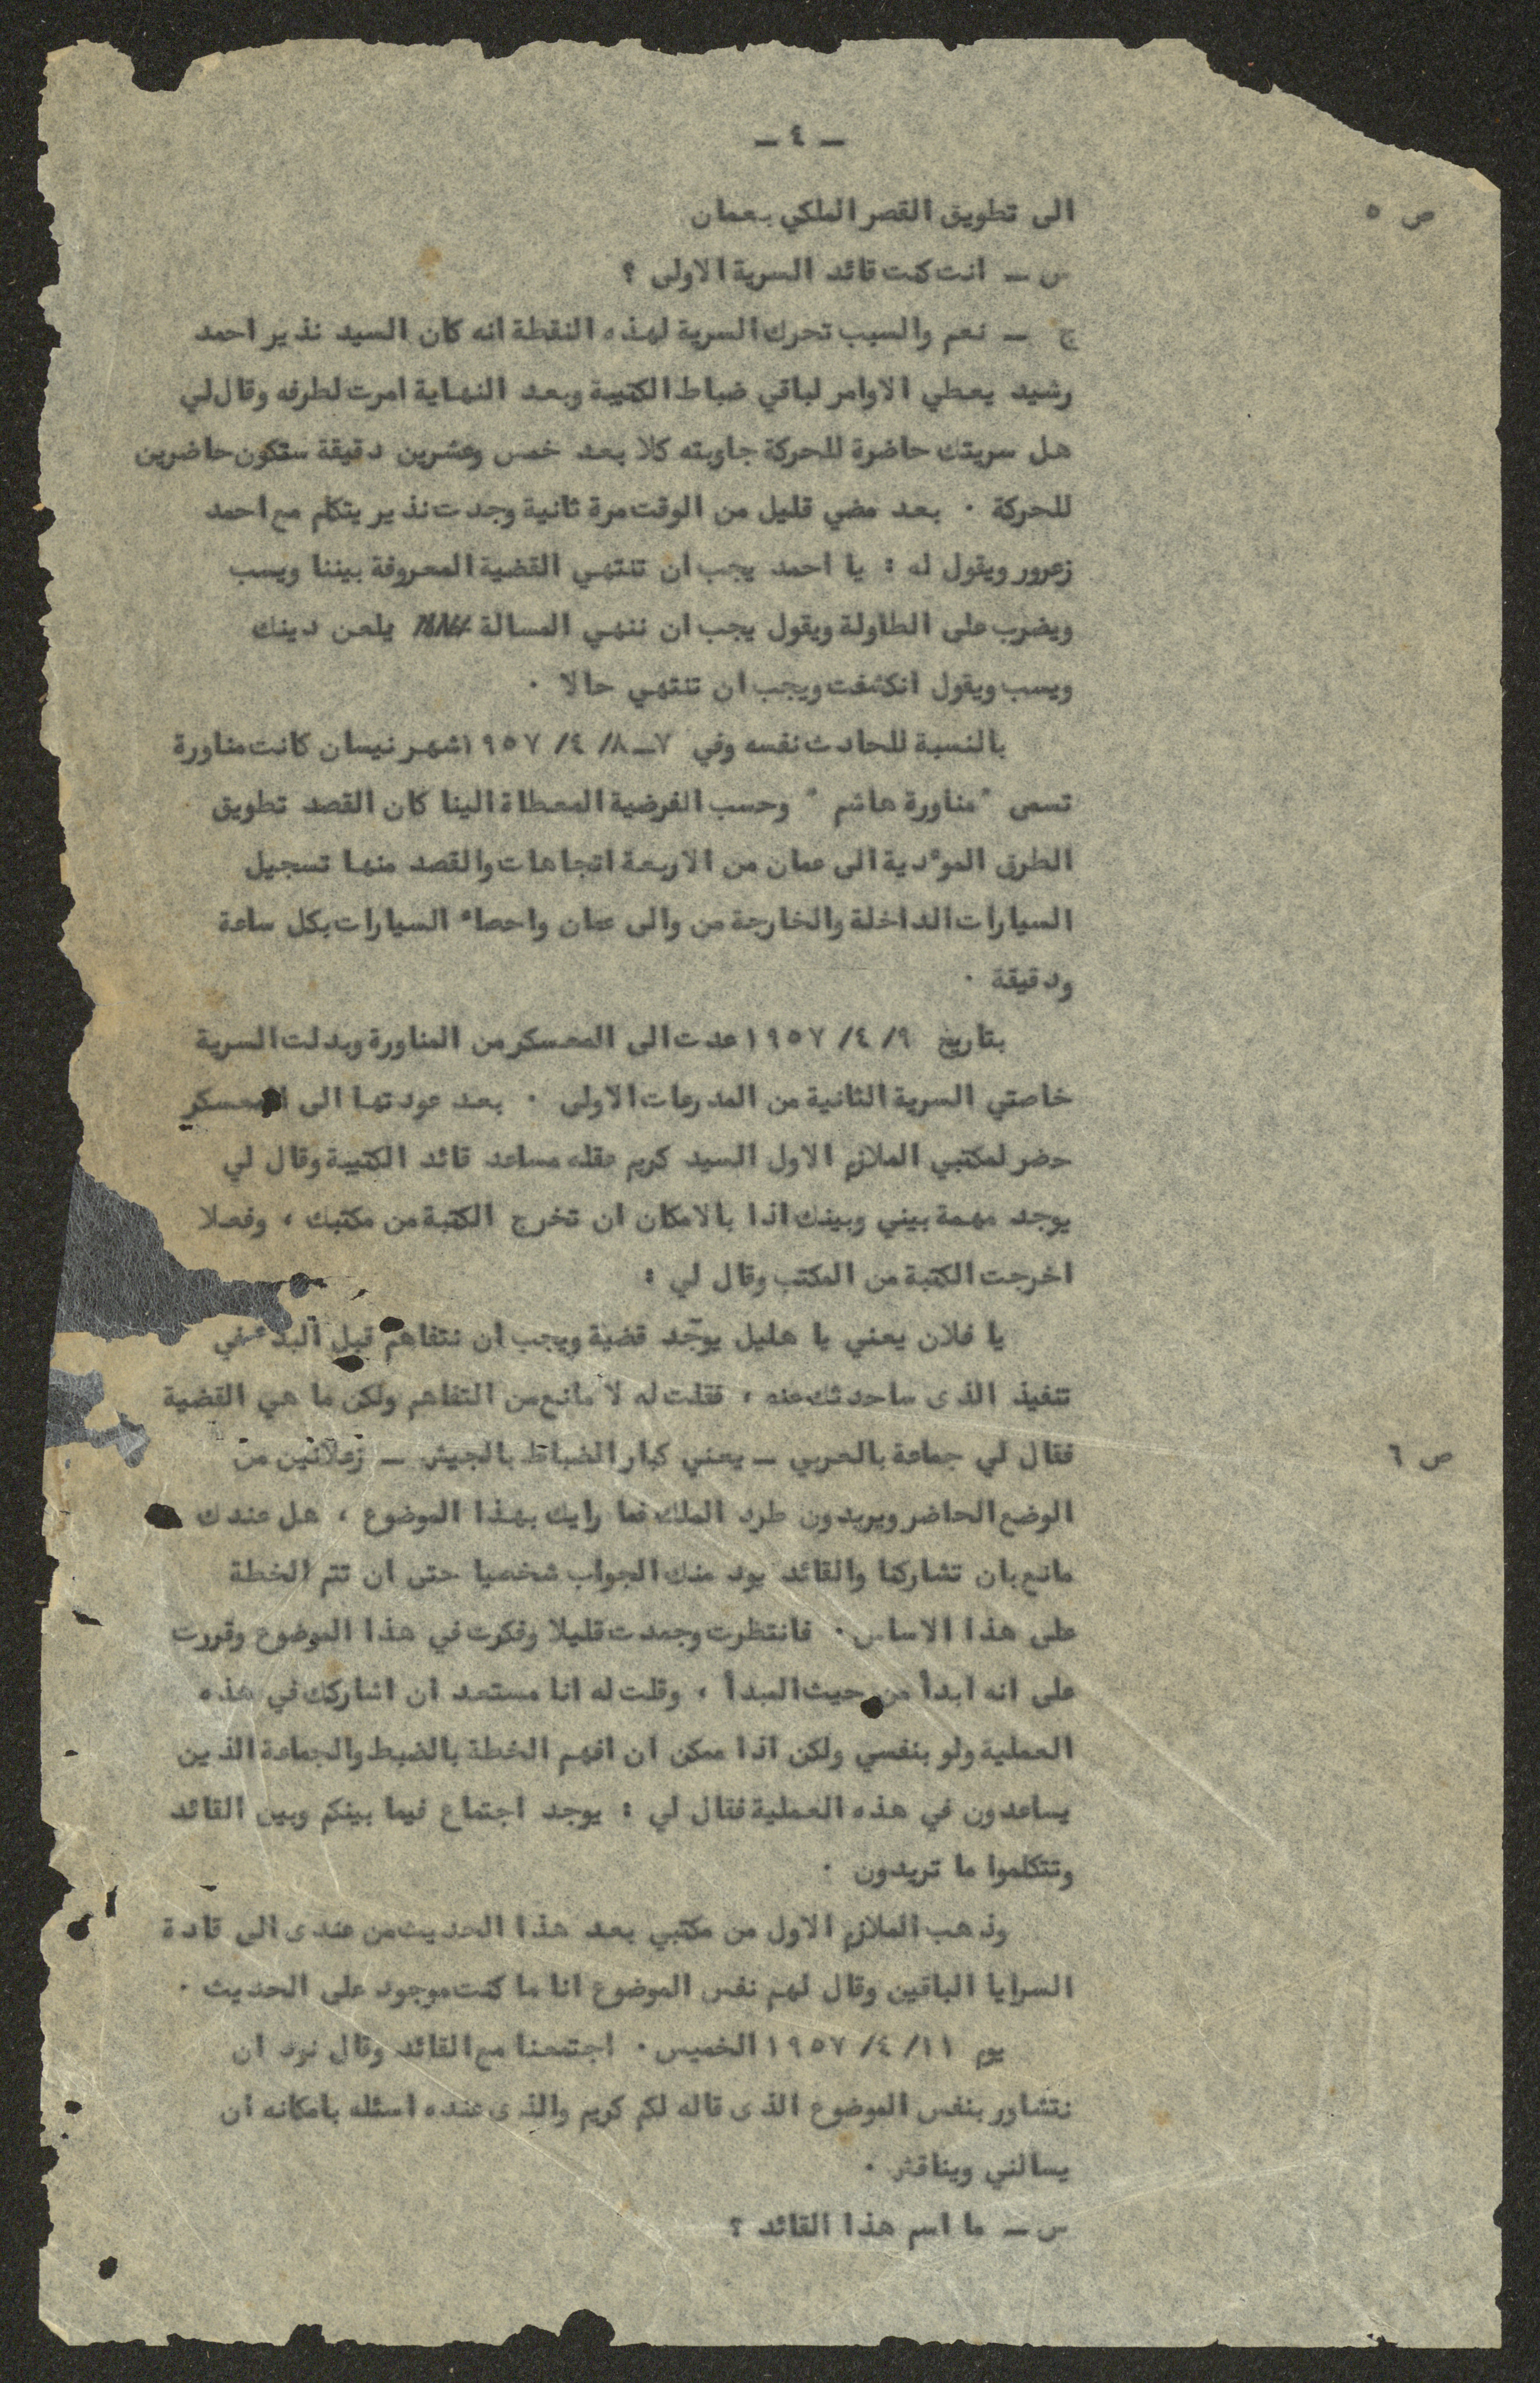 — ٤ —
ص ٥
الى تطويق القصر الملكي بعمان
س — انت كنت قائد السرية الاولى ؟
ج — نعم والسبب تحرك السرية لهذه النقطة انه كان السيد نذير احمد
رشيد يعطي الاوامر لباقي ضباط الكتيبة وبعد النهاية امرت لطرفه وقال لي
هل سريتك حاضرة للحركة جاوبته كلا بعد خمس وعشرين دقيقة ستكون حاضرين
للحركة . بعد مضي قليل من الوقت مرة ثانية وجدت نذير يتكلم مع احمد
زعرور ويقول له : يا احمد يجب ان تنتهي القضية المعروفة بيننا ويسب
ويضرب على الطاولة ويقول يجب ان ننهي المسالة يلعن دينك
ويسب ويقول انكشفت ويجب ان تنتهي حالا .
بالنسبة للحادث نفسه وفي ٧ــ٨/ ٤/ ١٩٥٧ شهر نيسان كانت مناورة
تسمى " مناورة هاشم " وحسب الفرضية المعطاة الينا كان القصد تطويق
الطرق المو'دية الى عمان من الاربعة اتجاهات والقصد منها تسجيل
السيارات الداخلة والخارجة من والى عمان واحصاء السيارات بكل ساعة
ودقيقة .
بتاريخ ٩/ ٤/ ١٩٥٧ عدت الى المعسكر من المناورة وبدلت السرية
خاصتي السرية الثانية من المدرعات الاولى . بعد عودتها الى المعسكر
حضر لمكتبي الملازم الاول السيد كريم عقله مساعد قائد الكتيبة وقال لي
يوجد مهمة بيني وبينك اذا بالامكان ان تخرج الكتبة من مكتبك ، وفعلا
اخرجت الكتبة من المكتب وقال لي :
يا فلان يعني يا هليل يوجد قضية ويجب ان نتفاهم قبل البدء في
تنفيذ الذى ساحدثك عنه ، فقلت له لا مانع من التفاهم ولكن ما هي القضية
ص ٦
فقال لي جماعة بالحربي — يعني كبار الضباط بالجيش — زعلانين من
الوضع الحاضر ويريدون طرد الملك فما رايك بهذا الموضوع ، هل عندك
مانع بان تشاركنا والقائد يود منك الجواب شخصيا حتى ان تتم الخطة
على هذا الاساس . فانتظرت وجمدت قليلا وفكرت في هذا الموضوع وقررت
على انه ابدأ من حيث المبدأ ، وقلت له انا مستعد ان اشاركك في هذه
العملية ولو بنفسي ولكن اذا ممكن ان افهم الخطة بالضبط والجماعة الذين
يساعدون في هذه العملية فقال لي : يوجد اجتماع فيما بينكم وبين القائد
وتتكلموا ما تريدون .
وذهب الملازم الاول من مكتبي بعد هذا الحديث من عندى الى قادة
السرايا الباقين وقال لهم نفس الموضوع انا ما كنت موجود على الحديث .
يوم ١١/ ٤/ ١٩٥٧ الخميس . اجتمعنا مع القائد وقال نود ان
نتشاور بنفس الموضوع الذى قاله لكم كريم والذى عنده اسئله بامكانه ان
يسالني ويناقش .
س — ما اسم هذا القائد ؟